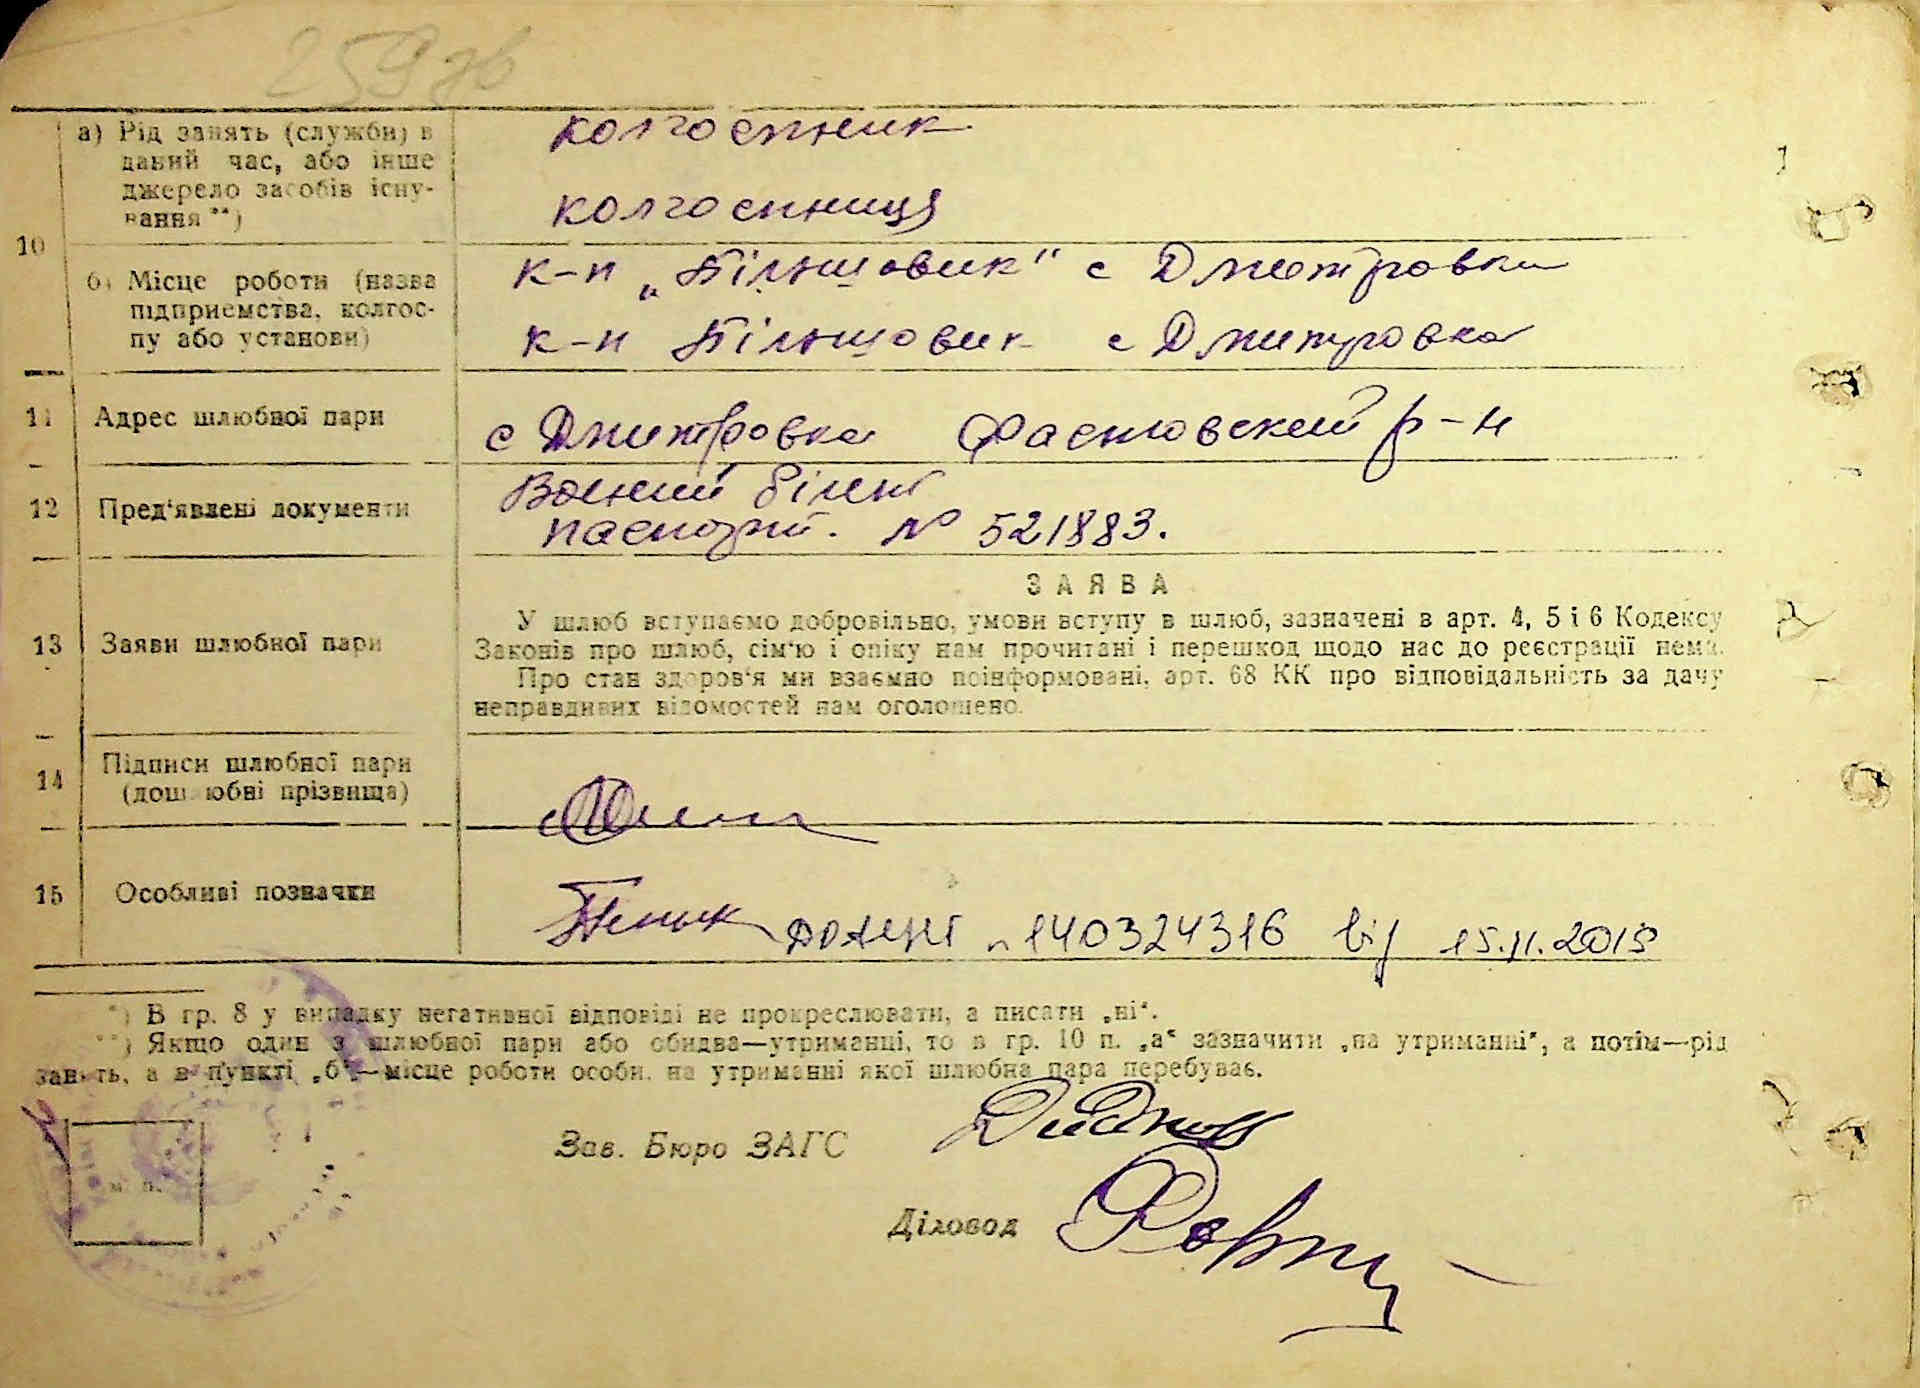 259 зв
10
а) Рід занять (служби) в
даний час, або інше
джерело засобів існу-
вання **)
колгоспник
колгоспниця
б) Місце роботи (назва
підприємства, колгос-
пу або установи)
к-п „Більшовик" с Дмитровка
к-п Більшовик с Дмитровка
11 Адрес шлюбної пари
с Дмитровка Фастовский р-н
12 Пред'явлені документи
Воєний білет
паспорт. № 521883.
13 Заяви шлюбної пари
ЗАЯВА
У шлюб вступаємо добровільно, умови вступу в шлюб, зазначені в арт. 4, 5 і 6 Кодексу
Законів про шлюб, сім'ю і опіку нам прочитані і перешкод щодо нас до реєстрації нема.
Про стан здоров'я ми взаємно поінформовані, арт. 68 КК про відповідальність за дачу
неправдивих відомостей нам оголошено.
14 Підписи шлюбної пари
(дошлюбні прізвища)
15 Особливі позначки
n 140324316 від 15.11.2019
*) В гр. 8 у випадку негативної відповіді не прокреслювати, а писати „ні".
**) Якщо один з шлюбної пари або обидва—утриманці, то в гр. 10 п. „а" зазначити „на утриманні", а потім—рід
занять, а в пункті „б"—місце роботи особи, на утриманні якої шлюбна пара перебуває.
м. п.
Зав. Бюро ЗАГС
Діловод